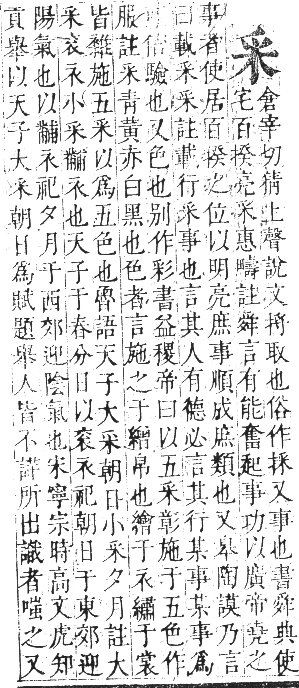 采
倉宰切猜上聲說文捋取也俗作採又事也書舜典使
宅百揆亮采惠疇註舜言有能奮起事功以廣帝堯之
事者使居百揆之位以明亮庶事順成庶類也又皋陶謨乃言
曰載采采註載行采事也言其人有德必言其行某事某事爲
信驗也又色也別作彩書益稷帝曰以五采彰施于五色作
服註采青黃赤白黑也色者言施之于繒帛也繪于衣繡于裳
皆雜施五采以爲五色也魯語天子大采朝日小采夕月註大
采衮衣小采黼衣也天子于春分日以衮衣祀朝日于東郊迎
陽氣也以黼衣祀夕月于西郊迎陰氣也宋寧宗時高文虎知
貢舉以天子大采朝日爲賦題舉人皆不詳所出識者嗤之又